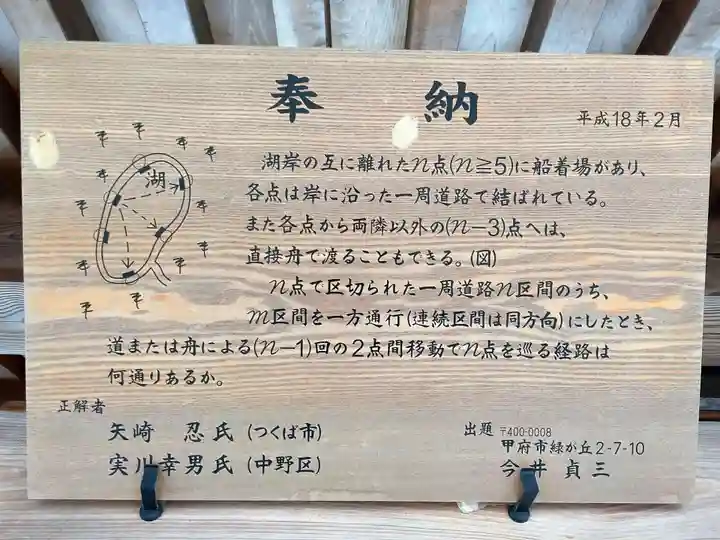 奉納
平成18年2月
湖
湖岸の互に離れたn点(n≧5)に船着場があり、
各点は岸に沿った一周道路で結ばれている。
また各点から両隣以外の(n-3)点へは、
直接舟で渡ることもできる。(図)
n点で区切られた一周道路n区間のうち、
m区間を一方通行(連続区間は同方向)にしたとき、
道または舟による(n-1)回の2点間移動でn点を巡る経路は
何通りあるか。
正解者
矢崎 忍氏(つくば市)
実川幸男氏(中野区)
出題 〒400-0008
甲府市緑が丘2-7-10
今井貞三